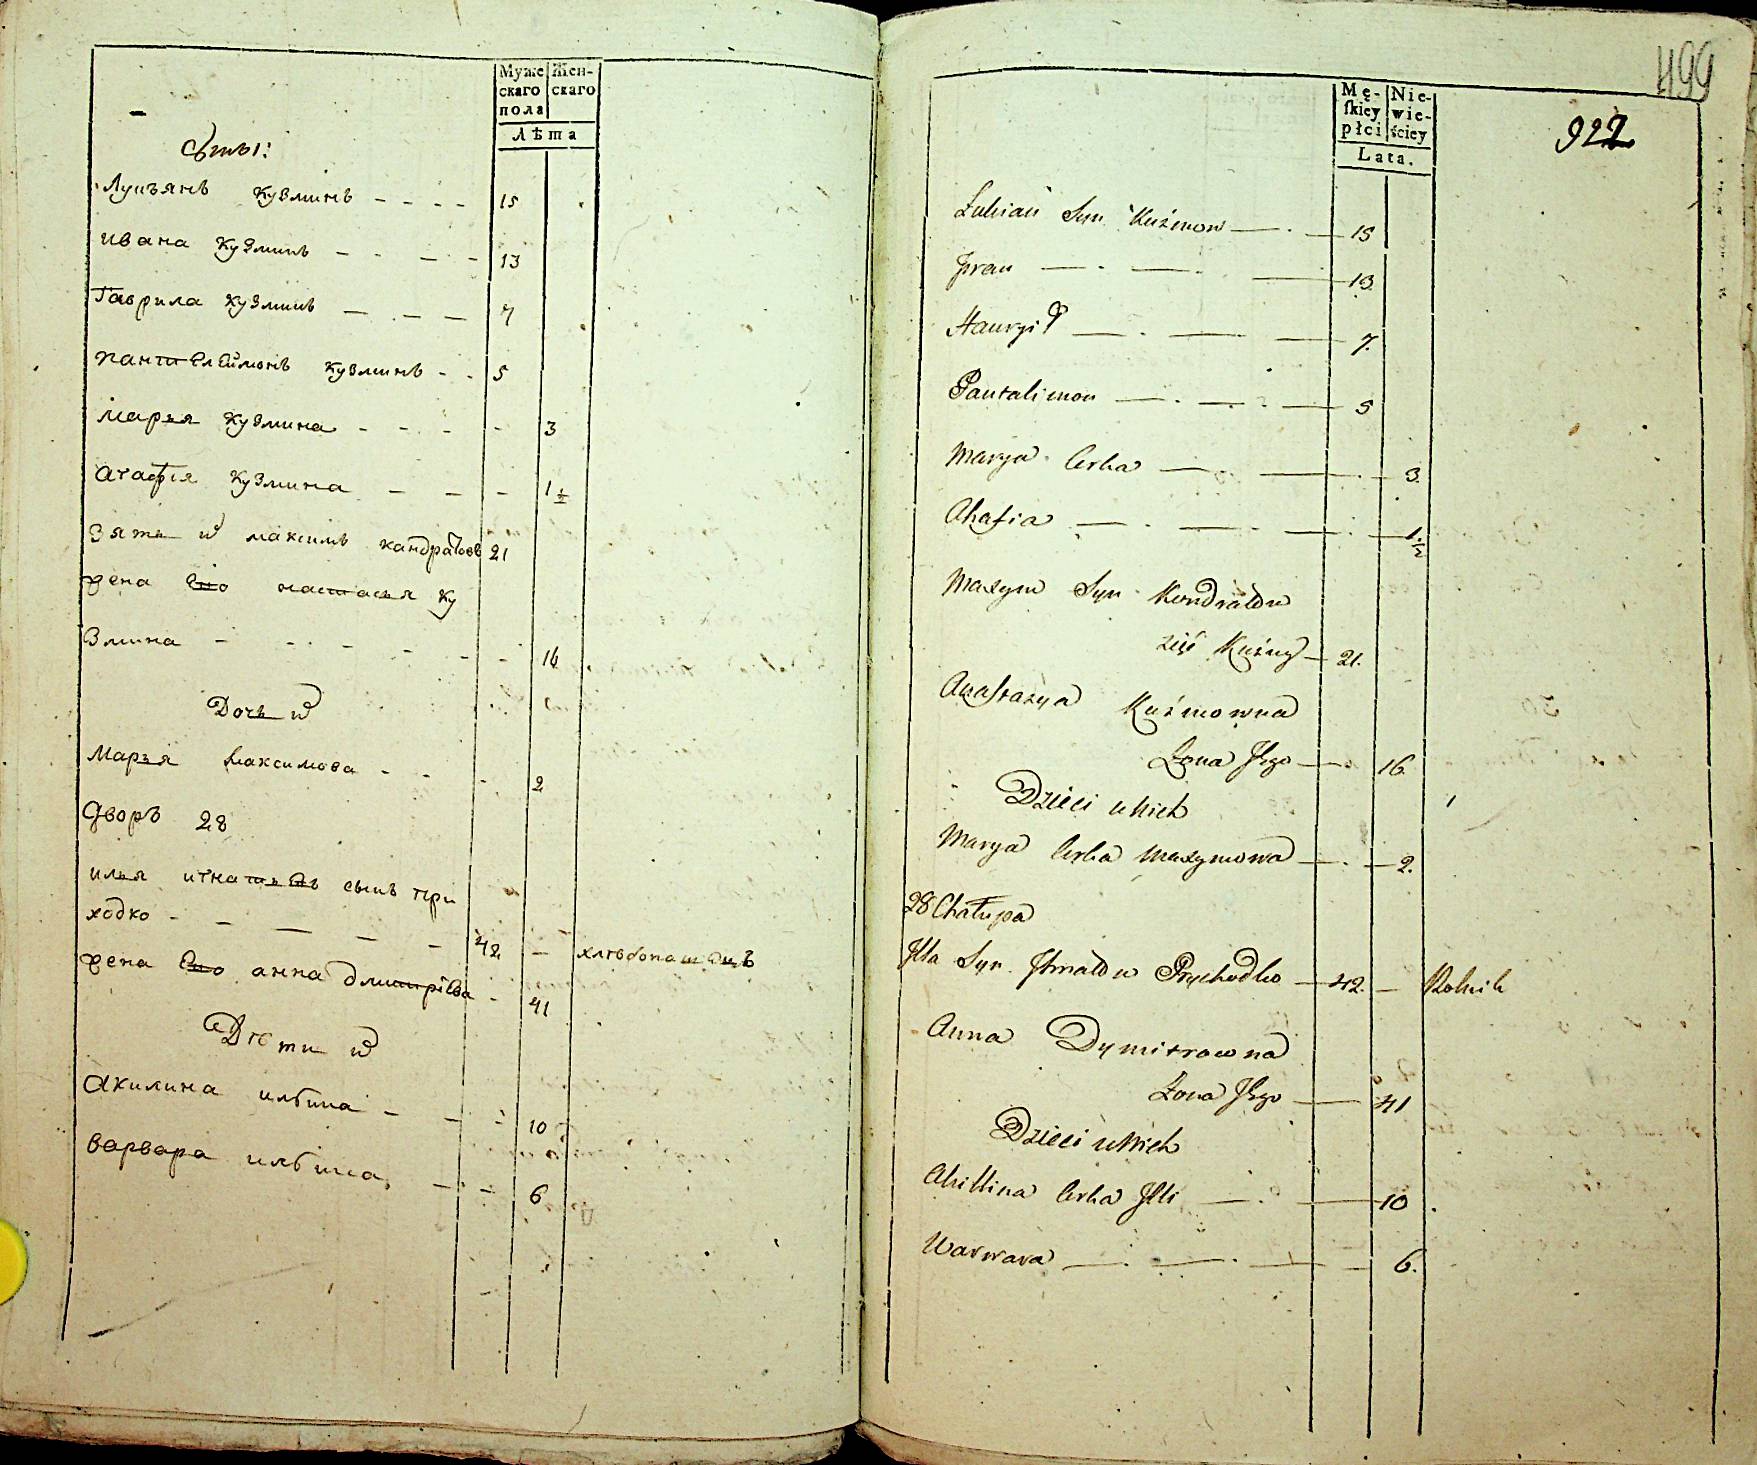 Муже Жен-
скаго скаго
пола
Лѣта
Сыны:
Лукъянъ Кузминъ - - - - 15
Ивана Кузминъ - - - - 13
Гаврила Кузминъ - - - 7
Пантелеймонъ Кузминъ - - 5
Марья Кузмина - - - - 3
Агафія Кузмина - - - 1 1/2
Зять и максимъ кандратоев 21
жена Его настасья Ку
змина - - - - - - 14
Дочь и
Марья Максимова - - - 2
Дворъ 28
илья игнатьевъ сынъ при
ходко - - - - - 42 - хлѣбопашецъ
жена Его анна дмитріева - 41
Дѣти и
Акилина ильина - - - 10
варвара ильина - - 6
499
922
Mę- Nie-
skiey wie-
płci ściey
Lata.
Łukian Syn Kuźmow — 15
Jwan — — — 13
Hauryił — — — 7.
Pantalimon — — — 5
Marya Corka — — — 3.
Ahafia — — — 1.1/2
Maxym Syn Kondratow
zięć Kuźmy — 21.
Anastazya Kuźmowna
Żona Jego — 16
Dzieci u Nich
Marya Corka Maxymowa — — 2.
28 Chałupa
Jlla Syn Jhnatow Prychodko — 42. — Rolnik
Anna Dymitrowna
Żona Jego — 41
Dzieci u Nich
Akillina Corka Jlli — — 10
Warwara — — — — 6.